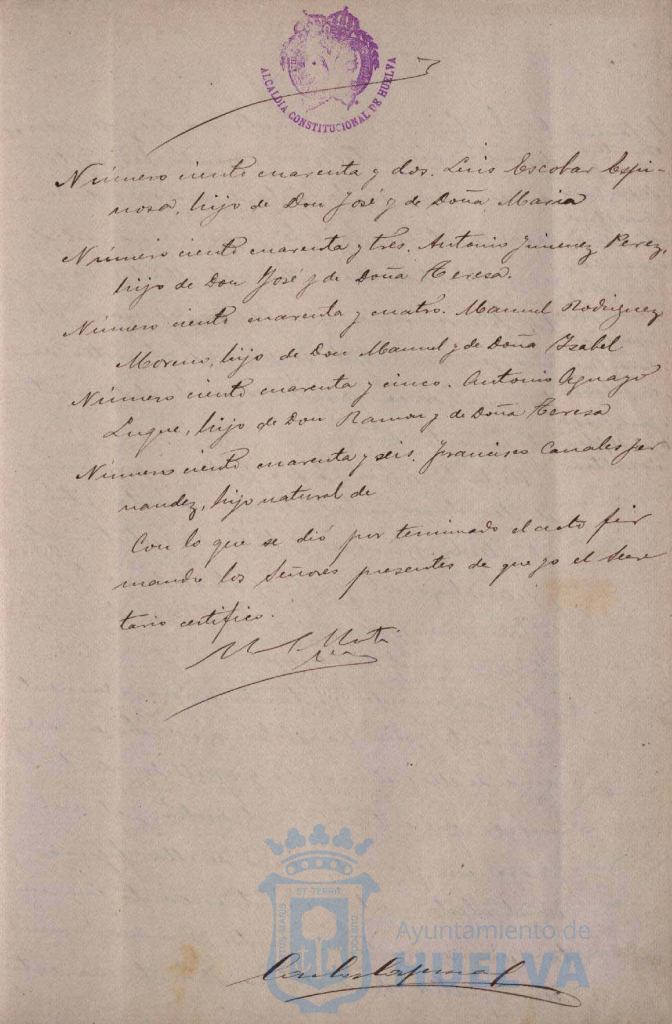 ALCALDIA CONSTITUCIONAL DE HUELVA
Número ciento cuarenta y dos. Luis Escobar Espi-
nosa, hijo de Don José y de Doña Maria
Número ciento cuarenta y tres. Antonio Jimenez Perez,
hijo de Don José y de Doña Teresa.
Número ciento cuarenta y cuatro. Manuel Rodriguez
Moreno, hijo de Don Manuel y de Doña Isabel
Número ciento cuarenta y cinco. Antonio Aguayo
Luque, hijo de Don Ramon y de Doña Teresa
Número ciento cuarenta y seis. Francisco Canales Fer
nandez, hijo natural de
Con lo que se dió por terminado el acto fir
mando los Señores presentes de que yo el Secre
tario certifico.
ET TERRA
Ayuntamiento de
HUELVA
Carlos